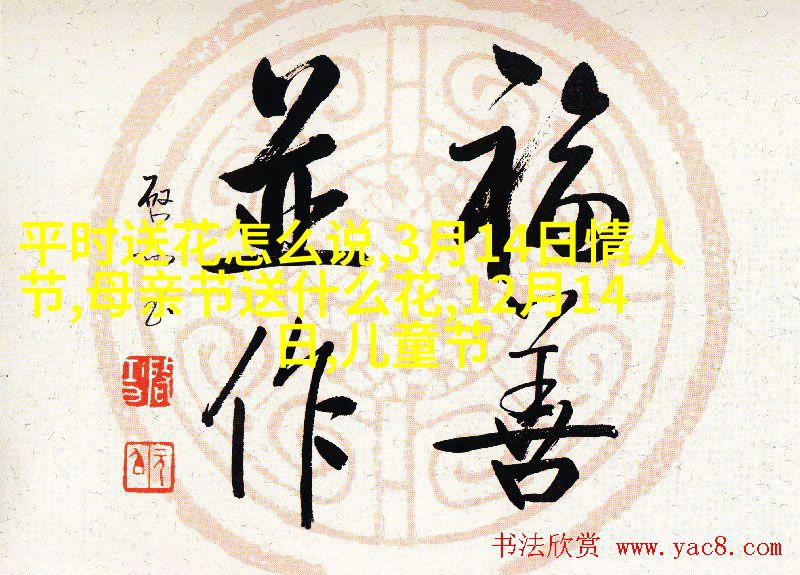 福善
並作
启功书
平时送花怎么说,3月14日情人
节,母亲节送什么花,12月14
日,儿童节
书法欣赏 www.yac8.com